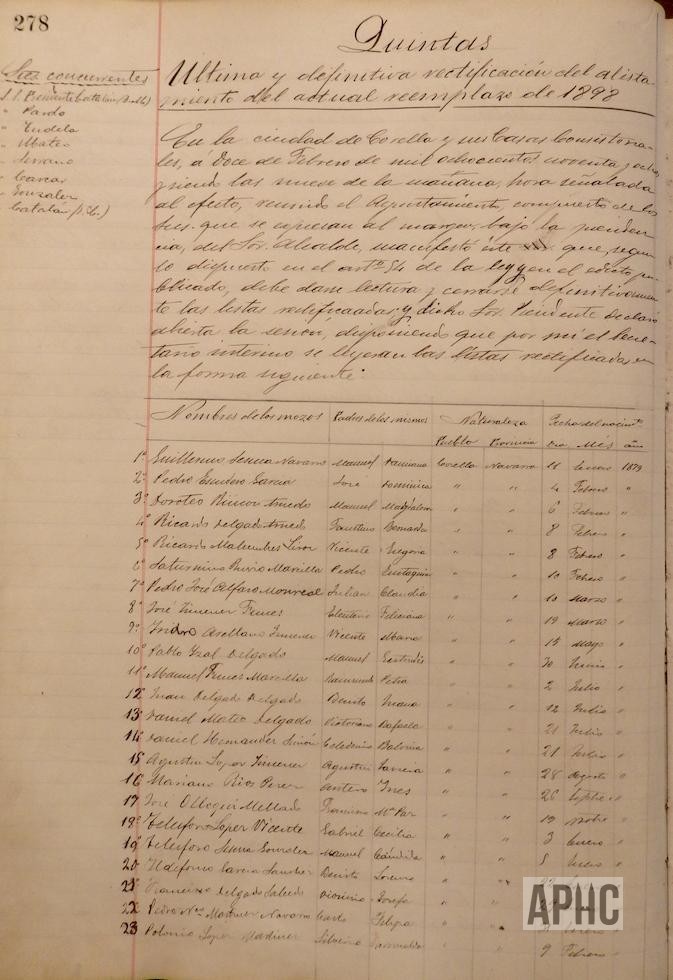 278
Quintas
Sres concurrentes
Ultima y definitiva rectificación del alista-
miento del actual reemplazo de 1898
" Pardo
" Tudela
" Mateo
" Serrano
" Garcar
" Gonzalez
" Catalán
En la ciudad de Corella y sus Casas Consistoria-
les, a doce de Febrero de mil ochocientos noventa y ocho,
siendo las nueve de la mañana, hora señalada
al efecto, reunido el Ayuntamiento, compuesto de los
Sres. que se expresan al margen, bajo la presiden-
cia, del Sor. Alcalde, manifestó este que, segun
lo dispuesto en el artº 54 de la ley y en el edicto pu-
blicado, debe darse lectura y cerrarse definitivamen-
te las listas rectificadas; y dicho Sor. Presidente declaró
abierta la sesion, disponiendo que por mi el Secre-
tario interino se leyeran las listas rectificadas en
la forma siguiente:
Nombres de los mozos Padres de los mismos Naturaleza Fecha del nacimto
Pueblo Provincia Dia Més año
1º Guillermo Serna Navarro Manuel Damiana Corella Navarra 11 Enero 1879
2º Pedro Escudero Garcia José Dominica " " 4 Febrero "
3º Doroteo Arnedo Manuel Magdalena " " 6 Febrero "
4º Ricardo Delgado Arnedo Faustino Bernarda " " 8 Febrero "
5º Ricardo Malumbres Vicente Gregoria " " 8 Febrero "
6º Saturnino Marcilla Pedro Eustaquia " " 10 Febrero "
7º Pedro José Alfaro Monreal Julian Claudia " " 10 Marzo "
8º José Jimenez Funes Eleuterio Feliciana " " 19 Marzo "
9º Isidro Arellano Jimenez Vicente Maria " " 15 Mayo "
10º Pablo Yzal Delgado Manuel Gertrudis " " 30 Junio "
11º Manuel Funes Marcilla Raimundo Petra " " 2 Julio "
12º Juan Delgado Delgado Benito Juana " " 12 Julio "
13º Daniel Mateo Delgado Victoriano Rafaela " " 21 Julio "
14º Daniel Hernandez Simón Celedonio " " 21 Julio "
15 Agustin Lopez Jimenez Agustin " " 28 Agosto "
16º Mariano Rios Perez Antero Ines " " 26 Septbre "
17 José Mellado Francisco Mª Paz " " 19 "
18º Telesforo Lopez Vicente Gabriel Cecilia " " 3 Enero "
19º Telesforo Serna Gonzalez Manuel Cándida " " 5 Enero "
20º Ildefonso Garcia Sanchez Benito Lorenza " "
21º Francisco Delgado Dionisio Josefa " "
22º Pedro Martinez Navarro Felipa " "
23 Polonio Lopez Martinez Silverio " " 9 Febrero "
APHC